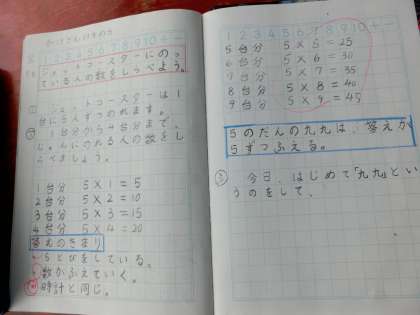 かけざんのきまり
1 2 3 4 5 6 7 8 9 10
ジェットコースターにのっ
ている人の数をしらべよう。
ジェットコースターは1
台に5人ずつのれます。
1台分から4台分まで、
じゅんにのれる人の数をし
らべましょう。
1台分 5×1=5
2台分 5×2=10
3台分 5×3=15
4台分 5×4=20
答えのきまり
・5とびをしている。
・数がふえていく。
時計と同じ。
1 2 3 4 5 6 7 8 9 10
5台分 5×5=25
6台分 5×6=30
7台分 5×7=35
8台分 5×8=40
9台分 5×9=45
5のだんの九九は、答えが
5ずつふえる。
今日、はじめて「九九」とい
うのをして、